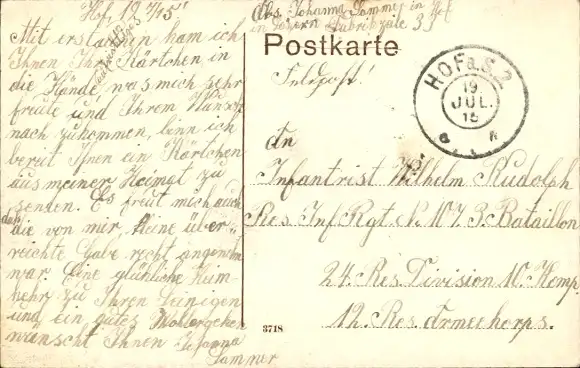 Hof, 19 7/15
Mit erstaunen ham ich
Ihnen Ihr Kärtchen in
die Hände, was mich sehr
freute und Ihrem Wunsch
nach zukommen, binn ich
bereit Ihnen ein Kärtchen
aus meiner Heimat zu
senden. Es freut mich auch
daß die von mir kleine über-
reichte Gabe recht angenehm
war. Eine glückliche Heim-
kehr zu Ihren Seinigen
und ein gutes Wohlergehen
wünscht Ihnen Johanna
Sammer
Abs. Johanna Sammer in Hof
in Bayern Fabrikzeile 33
Postkarte
Feldpost!
HOF a.S. 2
19
JUL.
15
An
Infantrist Wilhelm Rudolph
Res. Inf. Rgt. N. 107 3. Bataillon
24. Res. Division 10. Komp.
12. Res. Armeekorps.
3718